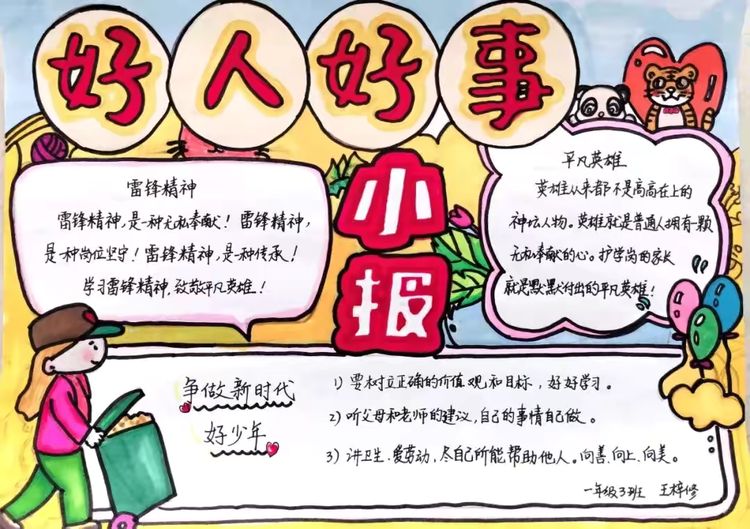 好人好事
小报
雷锋精神
雷锋精神，是一种无私奉献！雷锋精神，
是一种岗位坚守！雷锋精神，是一种传承！
学习雷锋精神，致敬平凡英雄！
平凡英雄
英雄从来都不是高高在上的
神坛人物。英雄就是普通人拥有一颗
无私奉献的心。护学岗的家长
就是默默付出的平凡英雄！
争做新时代
好少年
1）要树立正确的价值观和目标，好好学习。
2）听父母和老师的建议，自己的事情自己做。
3）讲卫生、爱劳动，尽自己所能帮助他人。向善、向上、向美。
一年级3班 王梓修